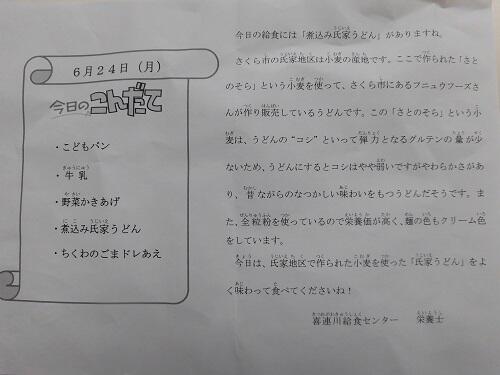 6月24日（月）
今日のこんだて
・こどもパン
・牛乳
・野菜かきあげ
・煮込み氏家うどん
・ちくわのごまドレあえ
今日の給食には「煮込み氏家うどん」がありますね。
さくら市の氏家地区は小麦の産地です。ここで作られた「さと
のそら」という小麦を使って、さくら市にあるフニュウフーズさ
んが作り販売しているうどんです。この「さとのそら」という小
麦は、うどんの“コシ”といって弾力となるグルテンの量が少
ないため、うどんにするとコシはやや弱いですがやわらかさがあ
り、昔ながらのなつかしい味わいをもつうどんだそうです。ま
た、全粒粉を使っているので栄養価が高く、麺の色もクリーム色
をしています。
今日は、氏家地区で作られた小麦を使った「氏家うどん」をよ
く味わって食べてくださいね！
喜連川給食センター　栄養士